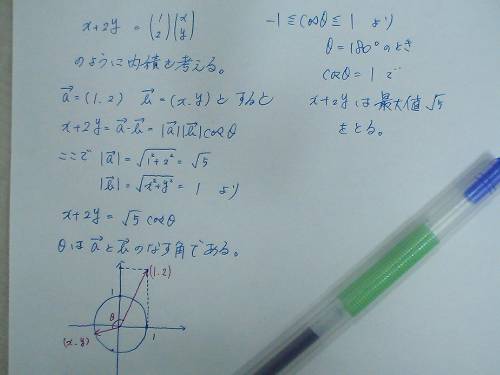 x+2y = (1 2)(x y)
のように内積を考える。
a⃗=(1.2) b⃗=(x.y)とすると
x+2y=a⃗・b⃗=|a⃗||b⃗|cosθ
ここで |a⃗|=√1²+2²=√5
|b⃗|=√x²+y²= 1 より
x+2y=√5 cosθ
θはa⃗とb⃗のなす角である。
(1.2)
1
θ
(x.y)
1
-1≦cosθ≦1 より
θ=180°のとき
cosθ=1 で
x+2yは最大値√5
をとる。